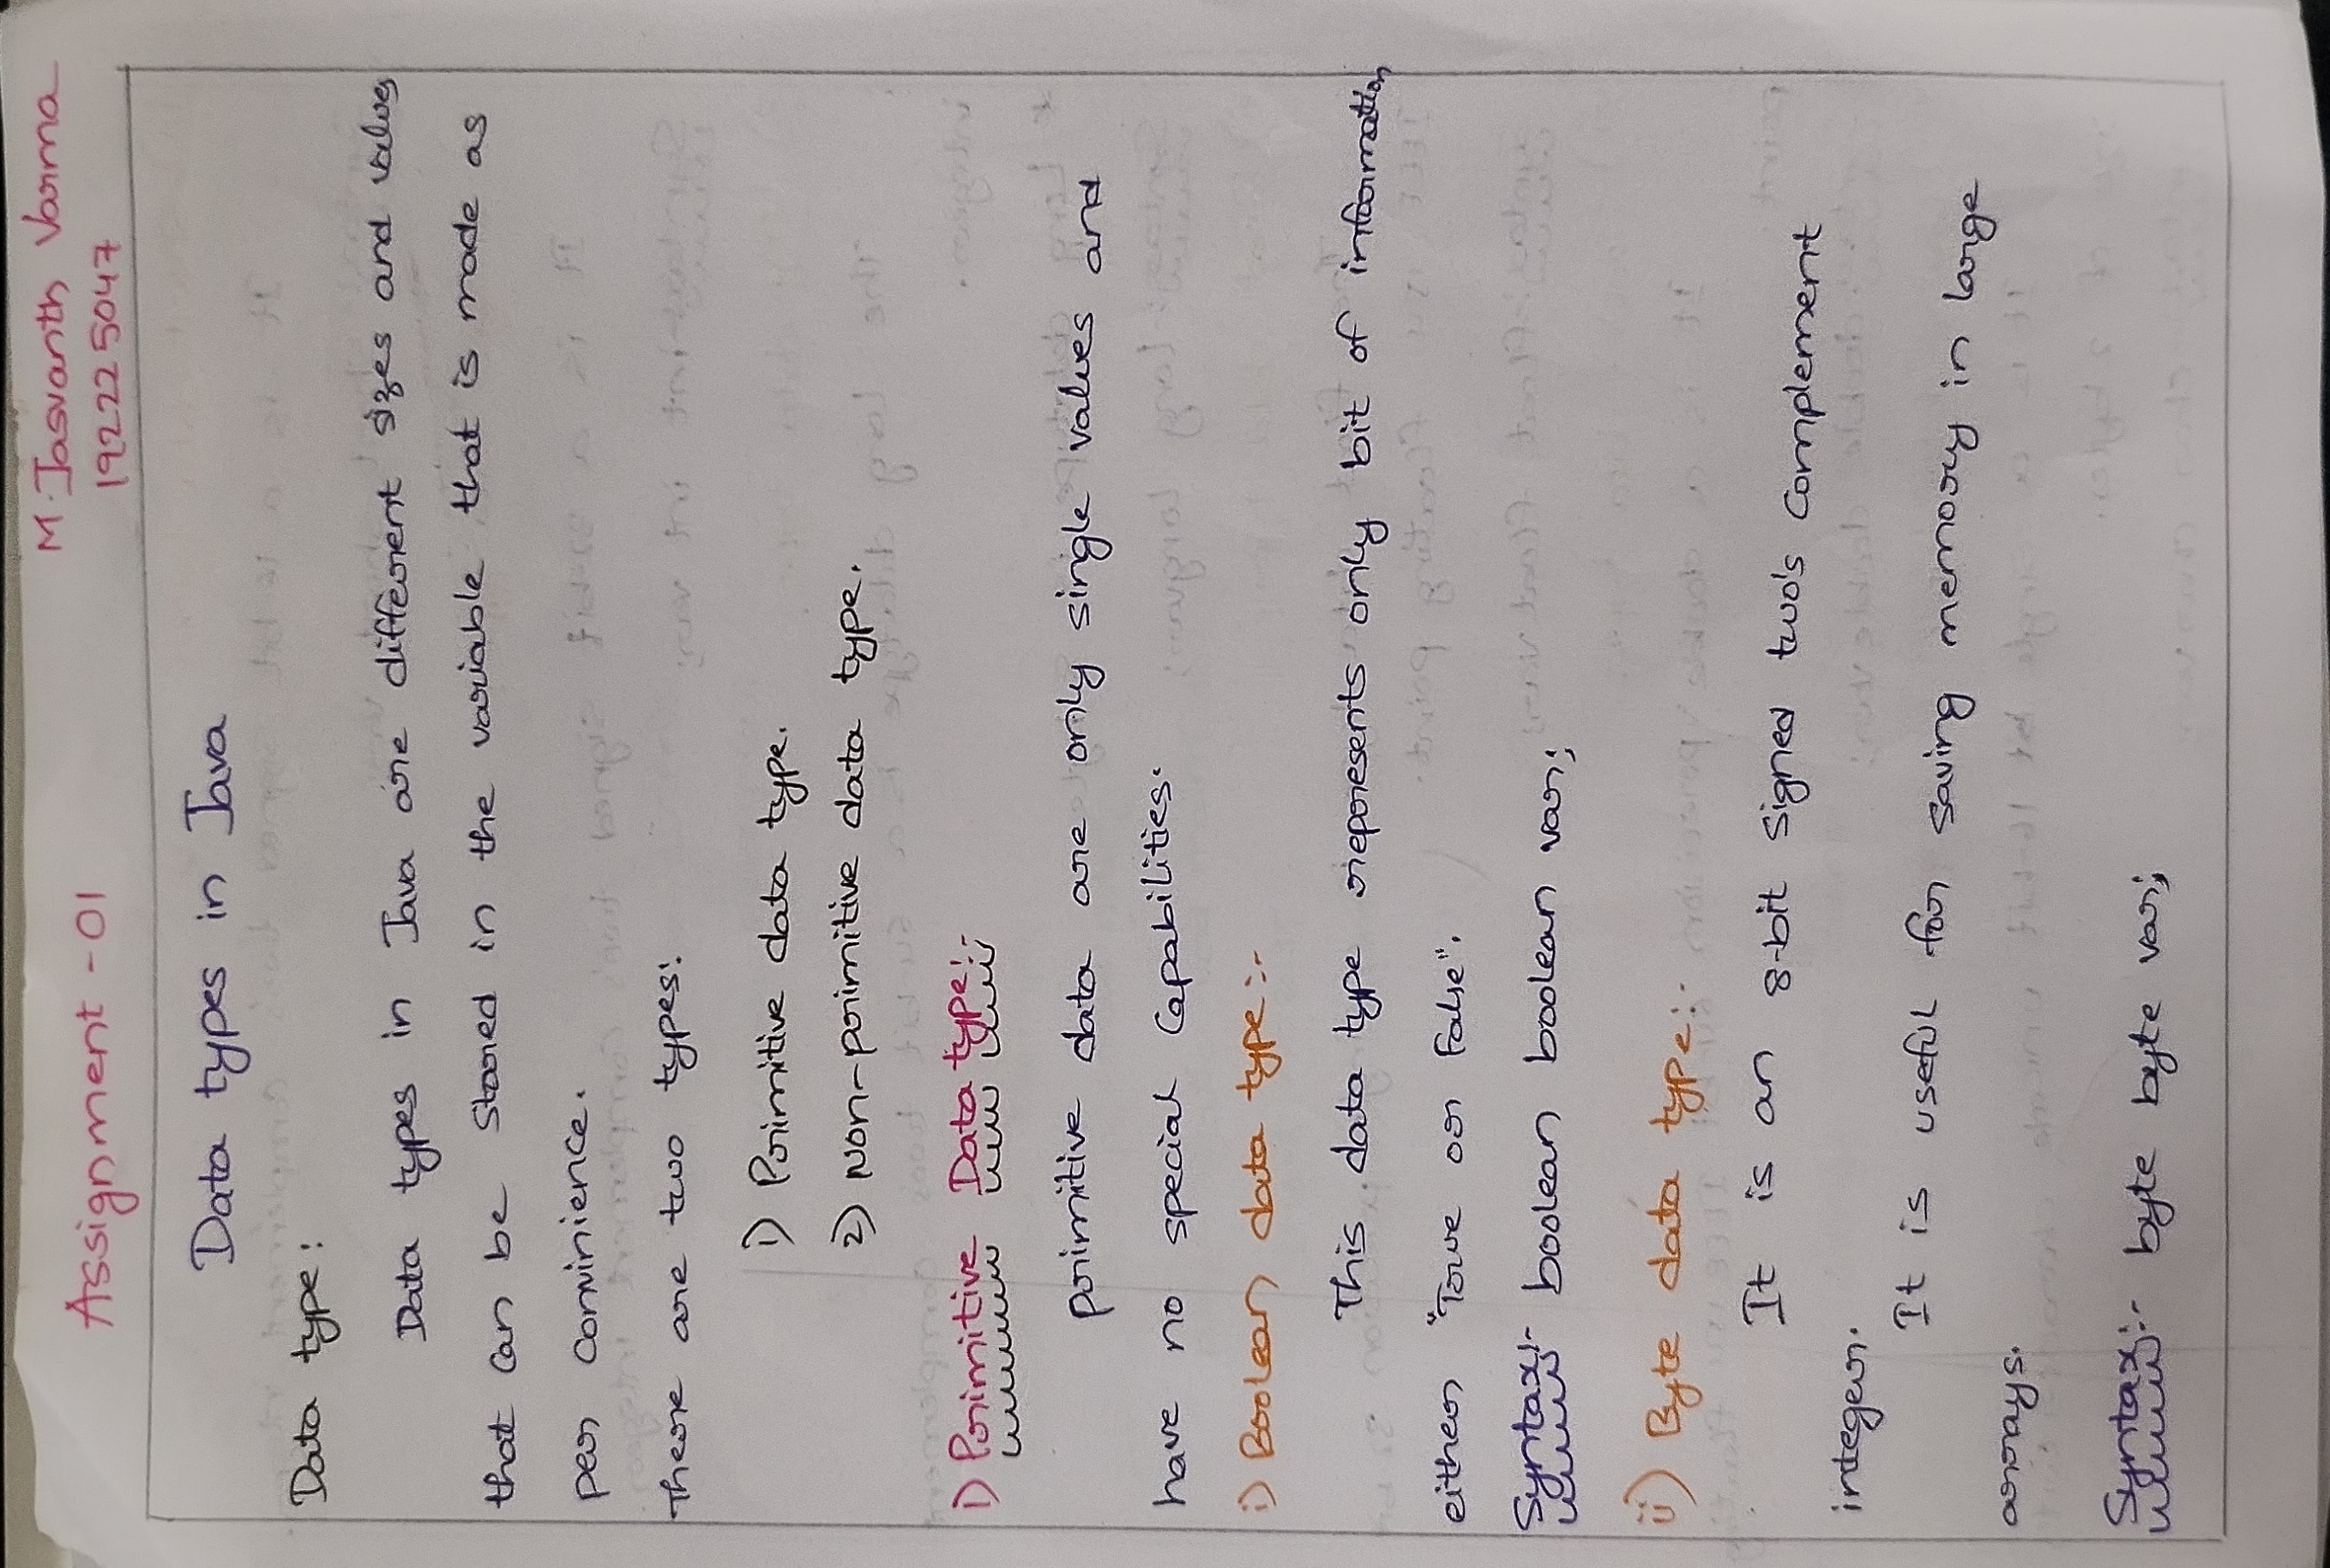 Assignment - 01
M. Jasvanth Varma
192225047
Data types in Java
Data type:
Data types in Java are different sizes and values
that can be stored in the variable that is made as
per convinience.
There are two types:
1) Primitive data type.
2) Non-primitive data type.
1) Primitive Data type:-
primitive data are only single values and
have no special capabilities.
i) Boolean data type:-
This data type represents only bit of information
either "True or false".
Syntax:- boolean boolean var;
ii) Byte data type:-
It is an 8-bit signed two's complement
integer.
It is useful for saving memory in large
arrays.
Syntax:- byte byte var;